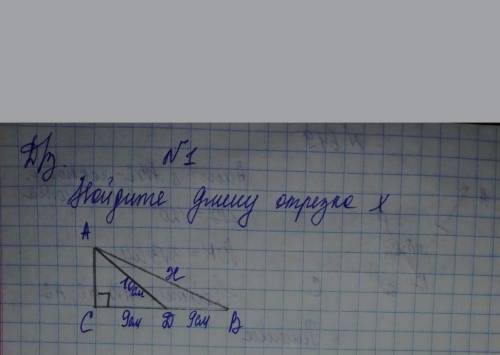 Д/З.
№1
Найдите длину отрезка x
A
x
10см
C 9см D 9см B